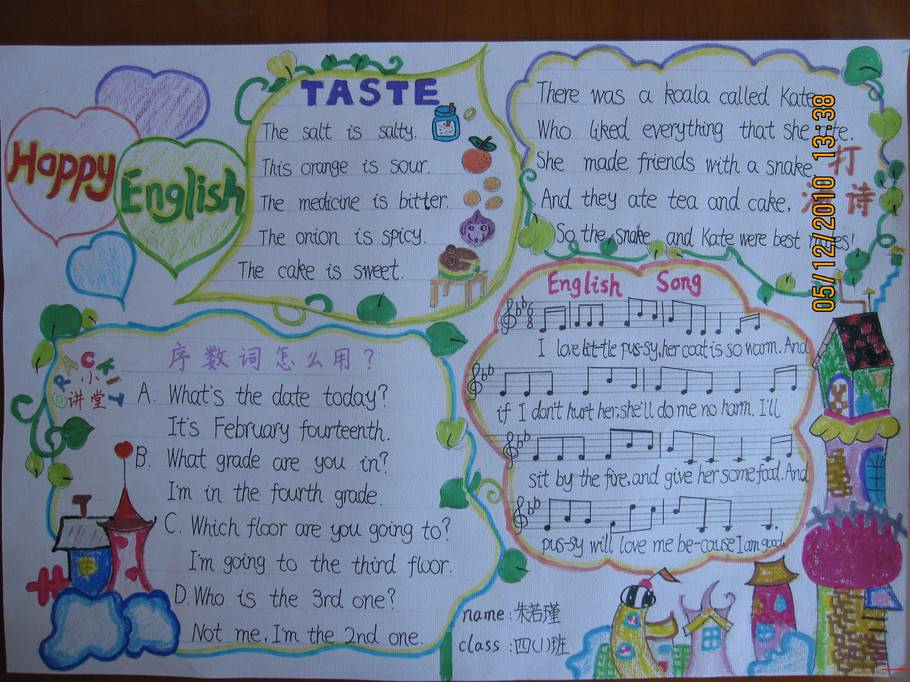 Happy
English
TASTE
The salt is salty.
This orange is sour.
The medicine is bitter.
The onion is spicy.
The cake is sweet.
There was a koala called Kate
Who liked everything that she ate.
She made friends with a snake
And they ate tea and cake,
So the snake and Kate were best
打
诗
05/12/2010 13:38
English Song
I love little pus-sy, her coat is so warm. And
if I don't hurt her: she'll do me no harm. I'll
sit by the fire, and give her some food. And
pus-sy will love me be-cause I am good.
小
讲堂
序数词怎么用?
A. What's the date today?
It's February fourteenth.
B. What grade are you in?
I'm in the fourth grade.
C. Which floor are you going to?
I'm going to the third floor.
D. Who is the 3rd one?
Not me, I'm the 2nd one.
name: 朱若瑾
class: 四(1)班